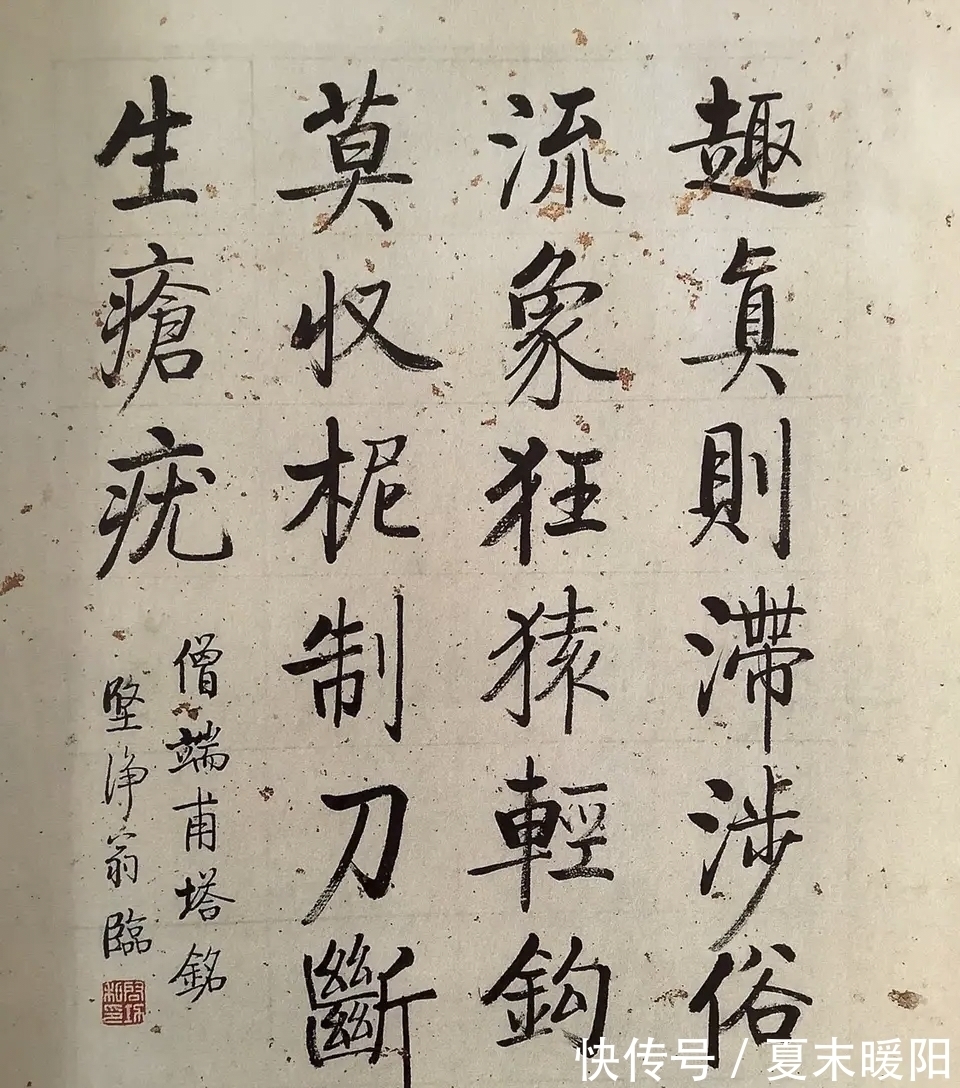 趣真則滯涉俗
流象狂猿輕鈎
莫收柅制刀斷
生瘡疣
僧端甫塔銘
堅淨翁臨
快传号 / 夏末暖阳